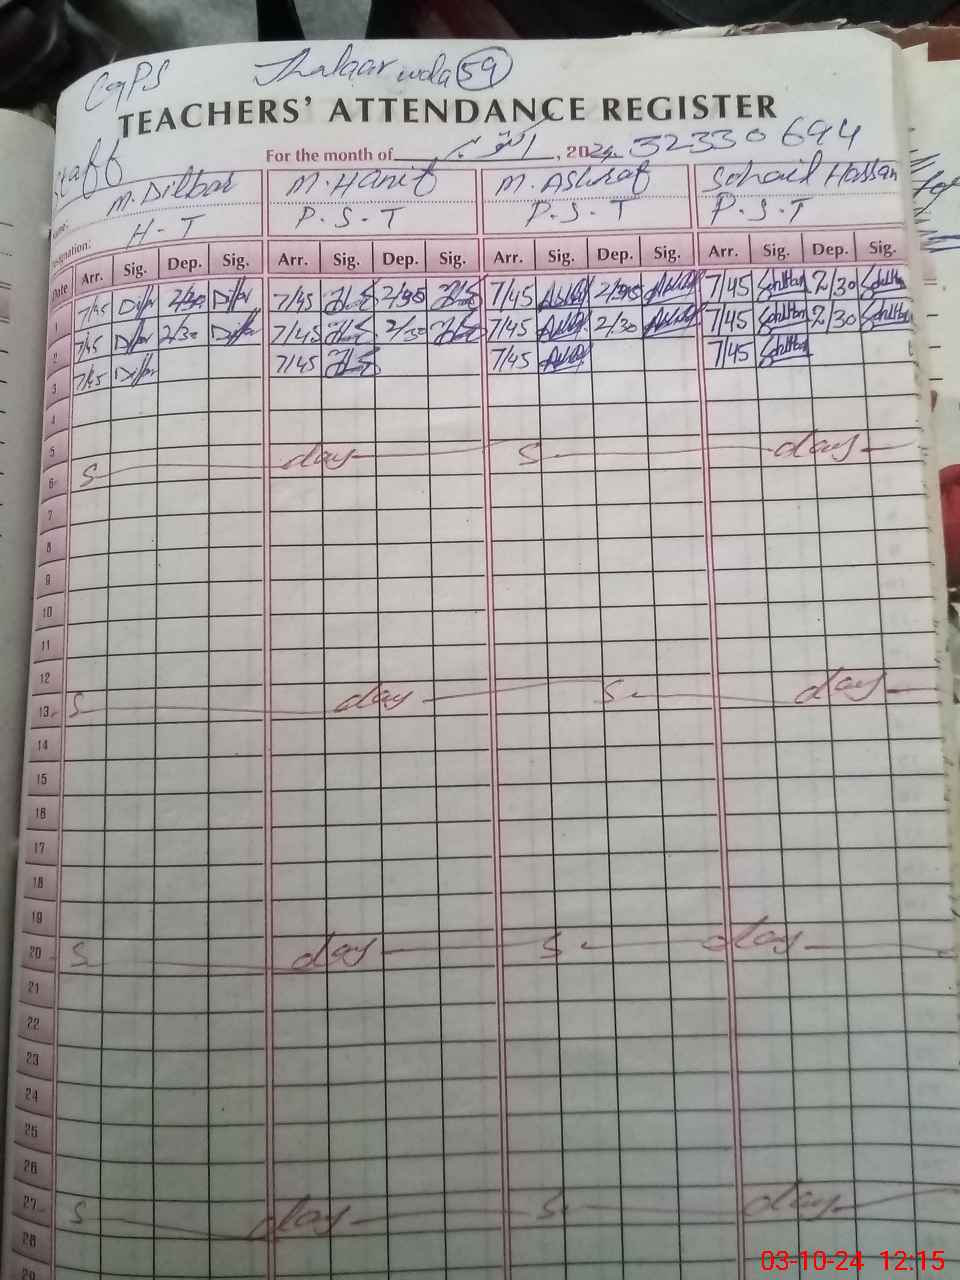 GPS Jhalaar wala 59
TEACHERS' ATTENDANCE REGISTER
Staff For the month of اکتوبر, 2024 32330694
Name: M. Dilbar M. Hanif M. Ashraf Sohail Hassan
Designation: H - T P. S. T P. S. T P. S. T
Date Arr. Sig. Dep. Sig. Arr. Sig. Dep. Sig. Arr. Sig. Dep. Sig. Arr. Sig. Dep. Sig.
1 7/45 2/30 7/45 7/45 7/45 2/30
2 7/45 2/30 7/45 2/30 7/45 2/30 7/45 2/30
3 7/45 7/45 7/45 7/45
4
5
6 S day S day
7
8
9
10
11
12
13 S day S day
14
15
16
17
18
19
20 S day S day
21
22
23
24
25
26
27 S day S day
28
29
03-10-24 12:15